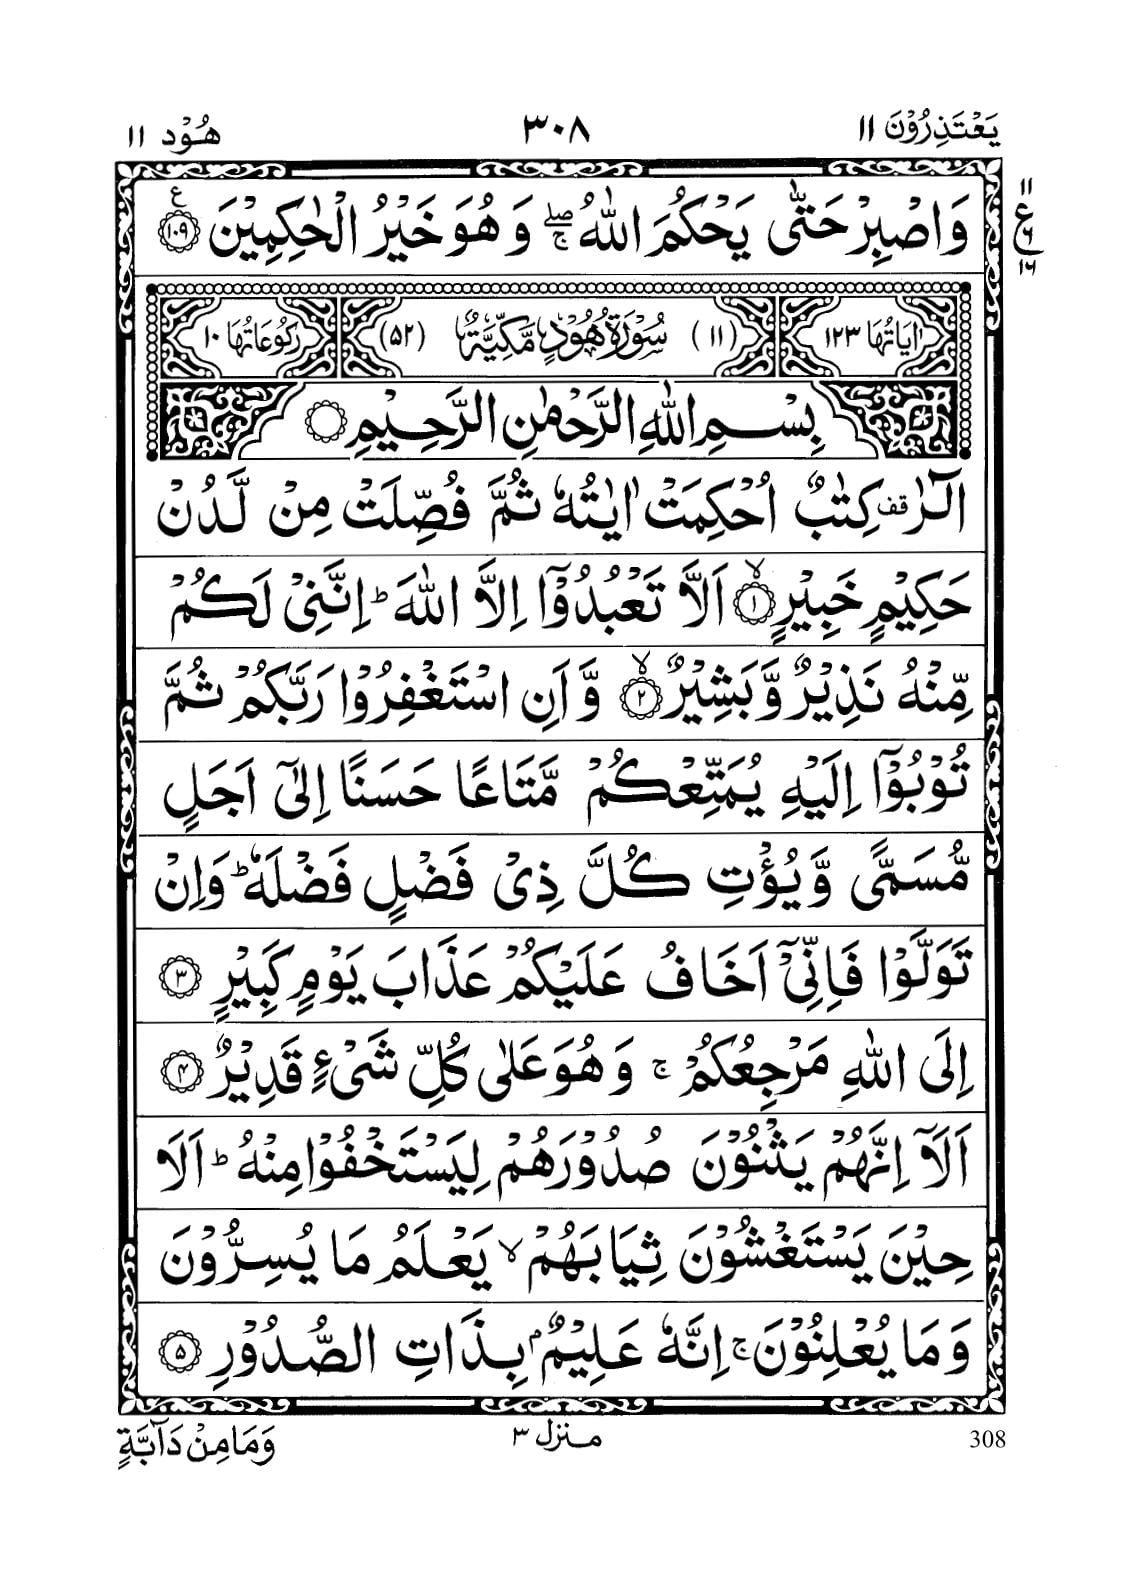 يَعْتَذِرُوْنَ ۱۱ ۳۰۸ هُوْد ۱۱
وَاصْبِرْ حَتّٰى يَحْكُمَ اللّٰهُ ۖۚ وَهُوَ خَيْرُ الْحٰكِمِيْنَ ۱۰۹ ع
۱۱
ع
۶
۱۶
اٰيَاتُهَا ۱۲۳ (۱۱) سُوْرَةُ هُوْدٍ مَّكِّيَّةٌ (۵۲) رُكُوْعَاتُهَا ۱۰
بِسْمِ اللّٰهِ الرَّحْمٰنِ الرَّحِيْمِ
الٓرٰ قف كِتٰبٌ اُحْكِمَتْ اٰيٰتُهٗ ثُمَّ فُصِّلَتْ مِنْ لَّدُنْ
حَكِيْمٍ خَبِيْرٍ ۙ ۱ اَلَّا تَعْبُدُوْٓا اِلَّا اللّٰهَ ؕ اِنَّنِيْ لَكُمْ
مِّنْهُ نَذِيْرٌ وَّبَشِيْرٌ ۙ ۲ وَّاَنِ اسْتَغْفِرُوْا رَبَّكُمْ ثُمَّ
تُوْبُوْٓا اِلَيْهِ يُمَتِّعْكُمْ مَّتَاعًا حَسَنًا اِلٰٓى اَجَلٍ
مُّسَمًّى وَّيُؤْتِ كُلَّ ذِيْ فَضْلٍ فَضْلَهٗ ؕ وَاِنْ
تَوَلَّوْا فَاِنِّيْٓ اَخَافُ عَلَيْكُمْ عَذَابَ يَوْمٍ كَبِيْرٍ ۳
اِلَى اللّٰهِ مَرْجِعُكُمْ ۚ وَهُوَ عَلٰى كُلِّ شَيْءٍ قَدِيْرٌ ۴
اَلَآ اِنَّهُمْ يَثْنُوْنَ صُدُوْرَهُمْ لِيَسْتَخْفُوْا مِنْهُ ؕ اَلَا
حِيْنَ يَسْتَغْشُوْنَ ثِيَابَهُمْ ۙ يَعْلَمُ مَا يُسِرُّوْنَ
وَمَا يُعْلِنُوْنَ ۚ اِنَّهٗ عَلِيْمٌۢ بِذَاتِ الصُّدُوْرِ ۵
308 منزل ۳ وَمَا مِنْ دَآبَّةٍ